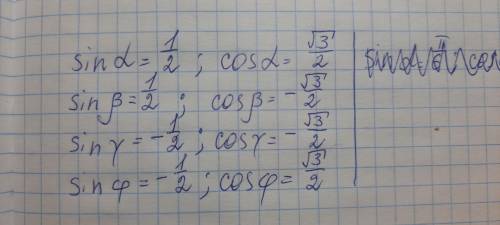 sin α = 1/2 ; cos α = √3/2
sin β = 1/2 ; cos β = -√3/2
sin γ = -1/2 ; cos γ = -√3/2
sin φ = -1/2 ; cos φ = √3/2